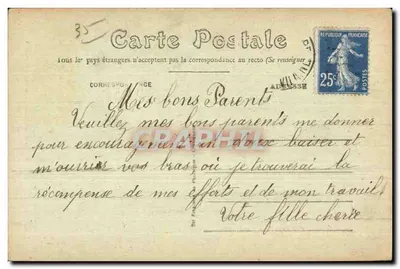 35
Carte Postale
Tous les pays étrangers n'acceptent pas la correspondance au recto (Se renseigner
REPUBLIQUE FRANÇAISE
25c
POSTES
CORRESPONDANCE
ADRESSE
Mes bons Parents
Veuillez mes bons parents me donner
pour encouragement un doux baiser et
m'ouvrir vos bras où je trouverai la
récompense de mes efforts et de mon travail
Votre fille chérie